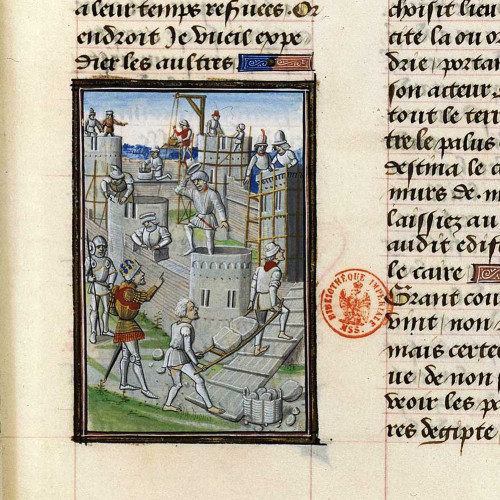 a leur temps refuces. Or
endroit Je vueil expe
dier les aultres
choisit lieu
cite la ou or
drie, portan
son acteur
tout le terr
tre le palus
destina le c
murs de. m
laissiez au
audit edif
le caire
Grant cou
vint, non
mais certe
ue de non
veoir les p
res degipte
BIBLIOTHÈQUE IMPÉRIALE
MSS.